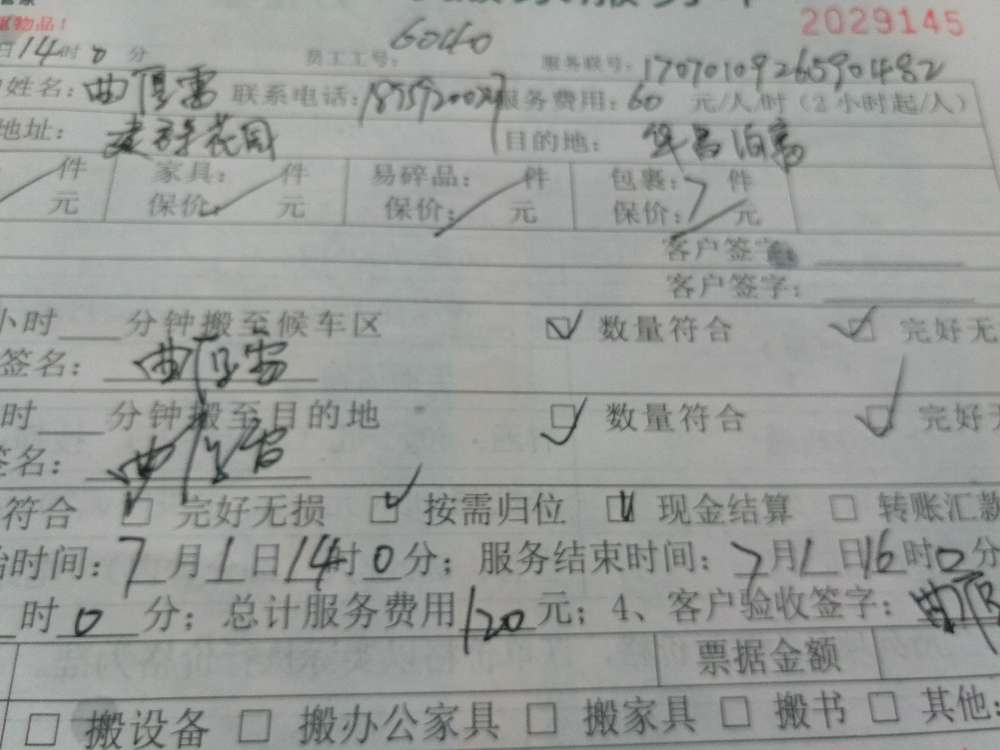 物品！ 2029145
日14时0分 员工工号：6040 服务联号：17070109265901482
姓名：曲 雷 联系电话： 服务费用：60 元/人/时（2小时起/人）
地址： 花园 目的地：华昌
件 家具： 件 易碎品： 件 包裹：7 件
元 保价： 元 保价： 元 保价： 元
客户签字
客户签字：
小时 分钟搬至候车区 数量符合 完好无
签名：曲 雷
时 分钟搬至目的地 数量符合 完好无
签名：曲
符合 完好无损 按需归位 现金结算 转账汇款
始时间：7月1日14时0分；服务结束时间：7月1日16时0分
时0分；总计服务费用120元；4、客户验收签字：曲
票据金额
搬设备 搬办公家具 搬家具 搬书 其他：